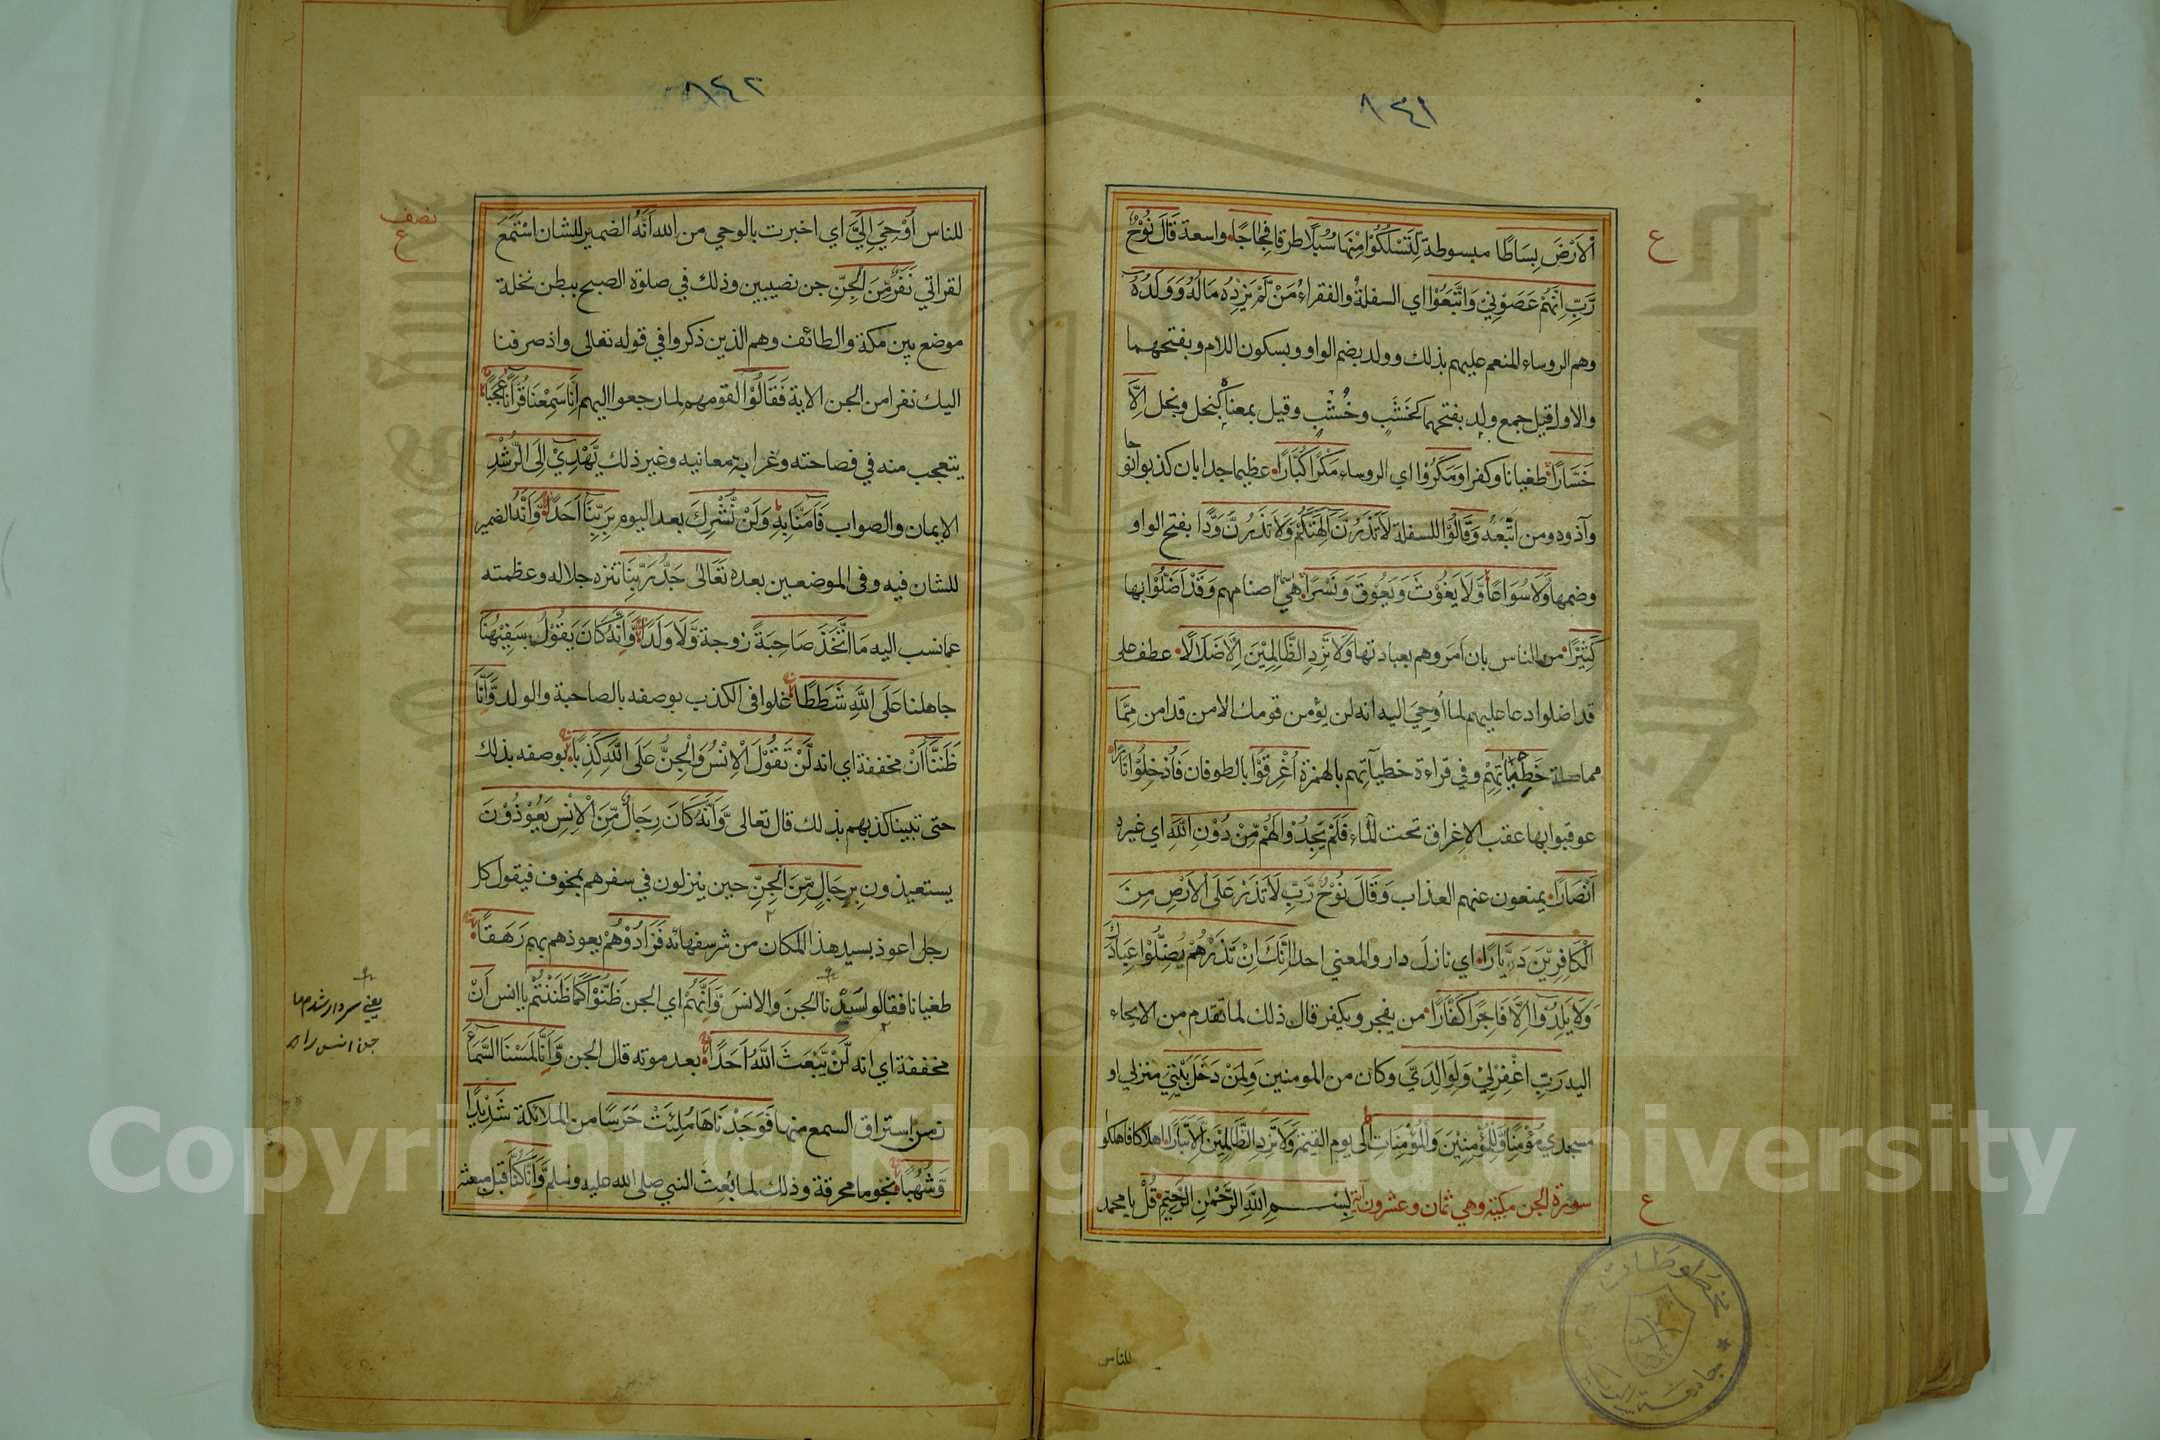 ٨٤١
ع
الْاَرْضَ بِسَاطًا مبسوطة لِّتَسْلُكُوْا مِنْهَا سُبُلًا طرقا فِجَاجًا واسعة قَالَ نُوْحٌ
رَّبِّ اِنَّهُمْ عَصَوْنِيْ وَاتَّبَعُوْا اي السفلة والفقراء مَنْ لَّمْ يَزِدْهُ مَالُهٗ وَوَلَدُهٗ
وهم الروساء المنعم عليهم بذلك وولد بضم الواو وبسكون اللام وبفتحهما
والاول قيل جمع ولد بفتحهما كخَشَبٍ وخُشْبٍ وقيل بمعناه كبخل وبخل اِلَّا
خَسَارًا طغيانا وكفرا وَمَكَرُوْا اي الروساء مَكْرًا كُبَّارًا عظيما جدا بان كذبوا نوحا
وآذوه ومن اتَّبَعَهُ وَقَالُوْا للسفلة لَا تَذَرُنَّ اٰلِهَتَكُمْ وَلَا تَذَرُنَّ وَدًّا بفتح الواو
وضمها وَّلَا سُوَاعًا وَّلَا يَغُوْثَ وَيَعُوْقَ وَنَسْرًا هي اصنامهم وَقَدْ اَضَلُّوْا بها
كَثِيْرًا من الناس بان امروهم بعبادتها وَلَا تَزِدِ الظَّالِمِيْنَ اِلَّا ضَلَالًا عطف على
قد اضلوا دعا عليهم لما اُوحِيَ اليه انه لن يؤمن قومك الا من قد امن مِمَّا
ما صلة خَطِيْاٰتِهِمْ وفي قراءة خطيآتهم بالهمزة اُغْرِقُوْا بالطوفان فَاُدْخِلُوْا نَارًا
عوقبوا بها عقب الاغراق تحت الماء فَلَمْ يَجِدُوْا لَهُمْ مِّنْ دُوْنِ اللّٰهِ اي غيره
اَنْصَارًا يمنعون عنهم العذاب وَقَالَ نُوْحٌ رَّبِّ لَا تَذَرْ عَلَى الْاَرْضِ مِنَ
الْكَافِرِيْنَ دَيَّارًا اي نازل دار والمعنى احدا اِنَّكَ اِنْ تَذَرْهُمْ يُضِلُّوْا عِبَادَكَ
وَلَا يَلِدُوْا اِلَّا فَاجِرًا كَفَّارًا من يفجر ويكفر قال ذلك لما تقدم من الايحاء
اليه رَبِّ اغْفِرْ لِيْ وَلِوَالِدَيَّ وكان من المومنين وَلِمَنْ دَخَلَ بَيْتِيَ منزلي او
مسجدي مُؤْمِنًا وَّلِلْمُؤْمِنِيْنَ وَالْمُؤْمِنَاتِ الى يوم القيمة وَلَا تَزِدِ الظَّالِمِيْنَ اِلَّا تَبَارًا اهلاكا فاهلكوا
سورة الجن مكية وهي ثمان وعشرون آية بِسْمِ اللّٰهِ الرَّحْمٰنِ الرَّحِيْمِ قُلْ يا محمد
ع
للناس
٨٤٢
نصف
ع
للناس اُوْحِيَ اِلَيَّ اي اخبرت بالوحي من الله اَنَّهُ الضمير للشان اسْتَمَعَ
لقراتي نَفَرٌ مِّنَ الْجِنِّ جن نصيبين وذلك في صلوة الصبح ببطن نخلة
موضع بين مكة والطائف وهم الذين ذكروا في قوله تعالى واذ صرفنا
اليك نفرا من الجن الاية فَقَالُوْا لقومهم لما رجعوا اليهم اِنَّا سَمِعْنَا قُرْاٰنًا عَجَبًا
يتعجب منه في فصاحته وغرابة معانيه وغير ذلك يَّهْدِيْ اِلَى الرُّشْدِ
الايمان والصواب فَاٰمَنَّا بِهٖ وَلَنْ نُّشْرِكَ بعد اليوم بِرَبِّنَا اَحَدًا وَّاَنَّهُ الضمير
للشان فيه وفى الموضعين بعده تَعَالٰى جَدُّ رَبِّنَا تنزه جلاله وعظمته
عما نسب اليه مَا اتَّخَذَ صَاحِبَةً زوجة وَّلَا وَلَدًا وَّاَنَّهٗ كَانَ يَقُوْلُ سَفِيْهُنَا
جاهلنا عَلَى اللّٰهِ شَطَطًا غلوا فى الكذب بوصفه بالصاحبة والولد وَّاَنَّا
ظَنَنَّا اَنْ مخففة اي انه لَّنْ تَقُوْلَ الْاِنْسُ وَالْجِنُّ عَلَى اللّٰهِ كَذِبًا بوصفه بذلك
حتى تبينا كذبهم بذلك قال تعالى وَّاَنَّهٗ كَانَ رِجَالٌ مِّنَ الْاِنْسِ يَعُوْذُوْنَ
يستعيذون بِرِجَالٍ مِّنَ الْجِنِّ حين ينزلون في سفرهم بمخوف فيقول كل
رجل اعوذ بسيد هذا المكان من شر سفهائه فَزَادُوْهُمْ بعوذهم بهم رَهَقًا
طغيانا فقالوا سدنا الجن والانس وَّاَنَّهُمْ اي الجن ظَنُّوْا كَمَا ظَنَنْتُمْ يا انس اَنْ
مخففة اي انه لَّنْ يَّبْعَثَ اللّٰهُ اَحَدًا بعد موته قال الجن وَّاَنَّا لَمَسْنَا السَّمَاءَ
رمنا استراق السمع منها فَوَجَدْنَاهَا مُلِئَتْ حَرَسًا من الملائكة شَدِيْدًا
وَّشُهُبًا نجوما محرقة وذلك لما بعث النبي صلى الله عليه وسلم وَّاَنَّا كُنَّا قبل مبعثه
يعني سردار شدم ما
جن انس را
مخطوطات
جامعة
Copyright © King Saud University